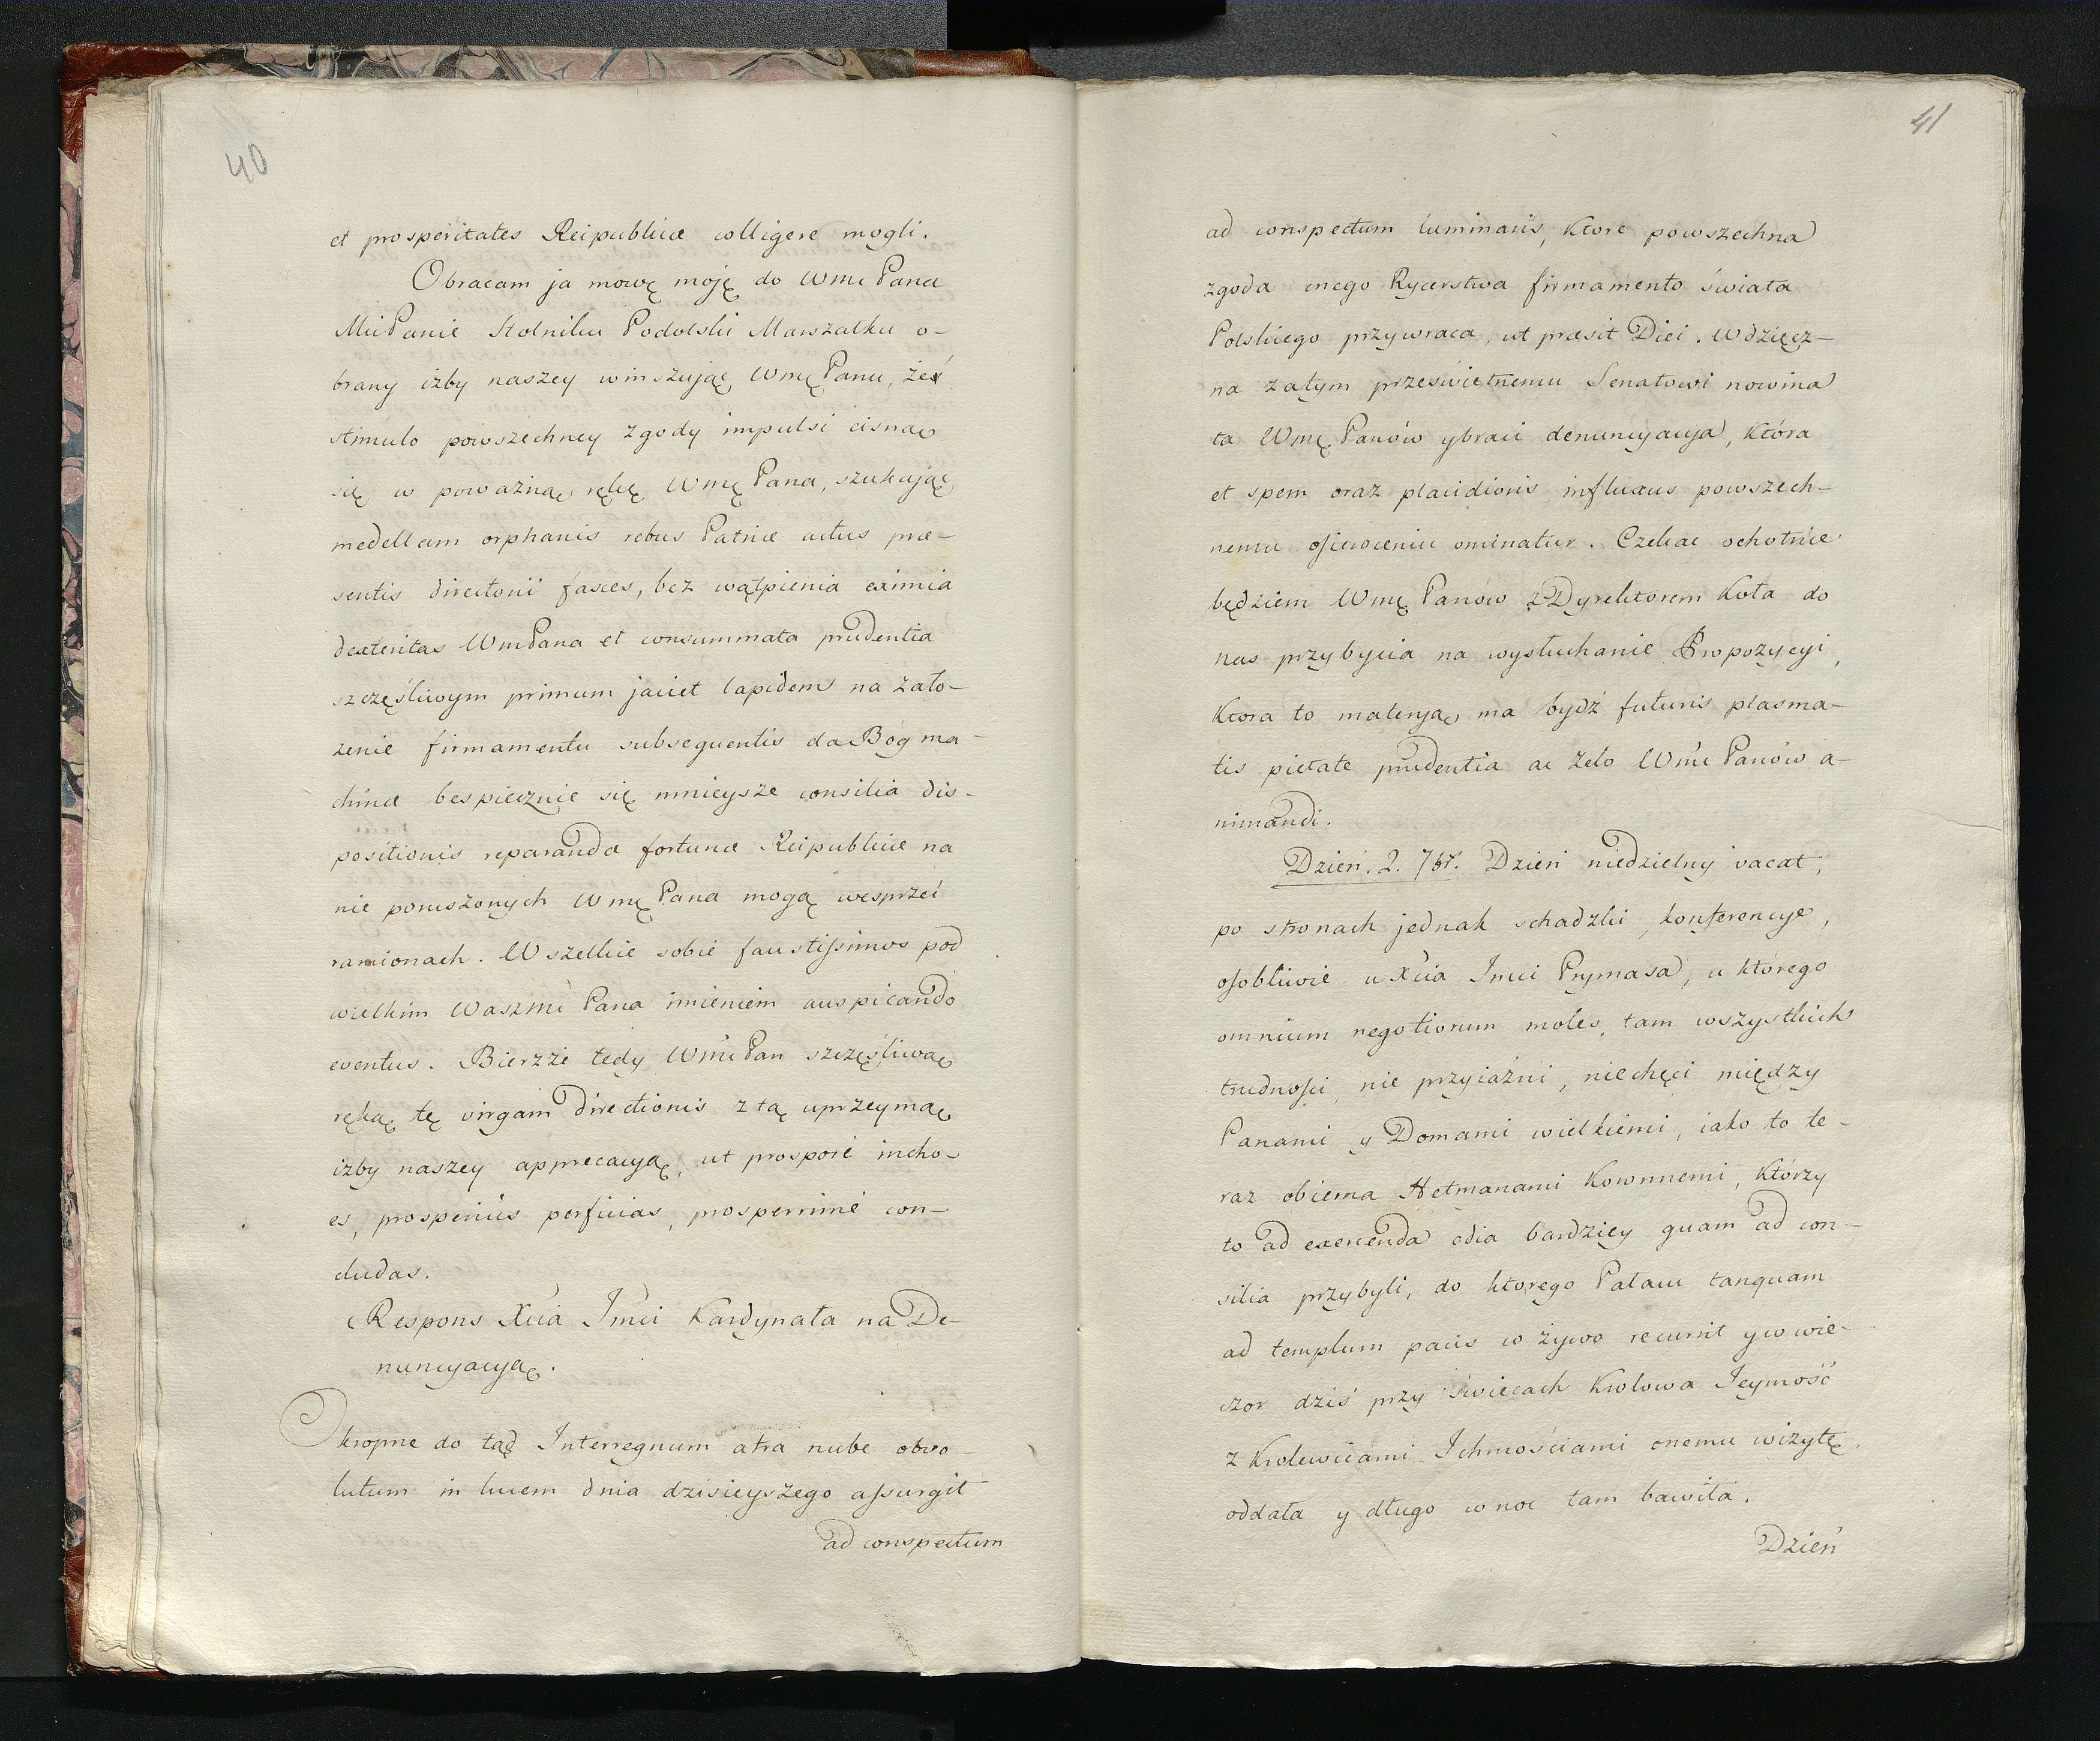 40
et prosperitates Reipublicæ colligere mogli.
Obracam ja mowę moję do Wmc Pana
Mci Panie Stolniku Podolski Marszałku o-
brany izby naszey winszując Wmę Panu, że
stimulo powszechney zgody impulsi cisnąc
się w poważną rękę Wmę Pana, szukając
medellam orphanis rebus Patriæ actus præ-
sentis directorii fasces, bez wątpienia eximia
dexteritas WmPana et consummata prudentia
szczęśliwym primum jaciet lapidem na zało-
żenie firmamentu subsequentis da Bóg ma-
chinæ bespiecznie się mnieysze consilia dis-
positionis reparandæ fortunæ Reipublicæ na
nie poruszonych Wmę Pana mogą wesprzeć
ramionach. Wszelkie sobie faustissimos pod
wielkim Waszmć Pana imieniem auspicando
eventus. Bierzże tedy Wmć Pan szczęśliwą
ręką tę virgam directionis z tą uprzeymą
izby naszey apprecacyą, ut prosporé incho-
es, prosperiùs perficias, prosperrimé con-
cludas.
Respons Xcia Jmci Kardynała na De-
nuncyacyą.
Okropne do tąd Interregnum atra nube obvo-
lutum in lucem dnia dzisieyszego assurgit
ad conspectum
41
ad conspectum luminaris, które powszechna
zgoda cnego Rycerstwa firmamento świata
Polskiego przywraca, ut præsit Diei. Wdzięcz-
na zatym prześwietnemu Senatowi nowina
ta Wmę Panów ybraci denuncyacya, która
et spem oraz placidioris influxus powszech-
nemu osieroceniu ominatur. Czekac ochotnie
będziem Wmę Panów z Dyrektorem Koła do
nas przybycia na wysłuchanie Propozycyi,
Ktora to materyą ma bydź futuris plasma-
tis pietate prudentia ac zelo Wmć Panów a-
nimandi.
Dzień. 2. 7br. Dzień niedzielny vacat,
po stronach jednak schadzki, konferencye,
osobliwie u Xcia Jmci Prymasa, u którego
omnium negotiorum moles, tam wszystkich
trudności, nie przyiaźni, niechęci między
Panami y Domami wielkiemi, iako to te-
raz obiema Hetmanami Koronnemi, którzy
to ad exercenda odia bardziey quam ad con-
silia przybyli, do ktorego Pałacu tanquam
ad templum pacis w żywo recurrit y w wie-
czor dziś przy świecach Krolowa Jeymość
z Krolewicami Ichmościami onemu wizytę
oddała y długo w noc tam bawiła.
Dzień